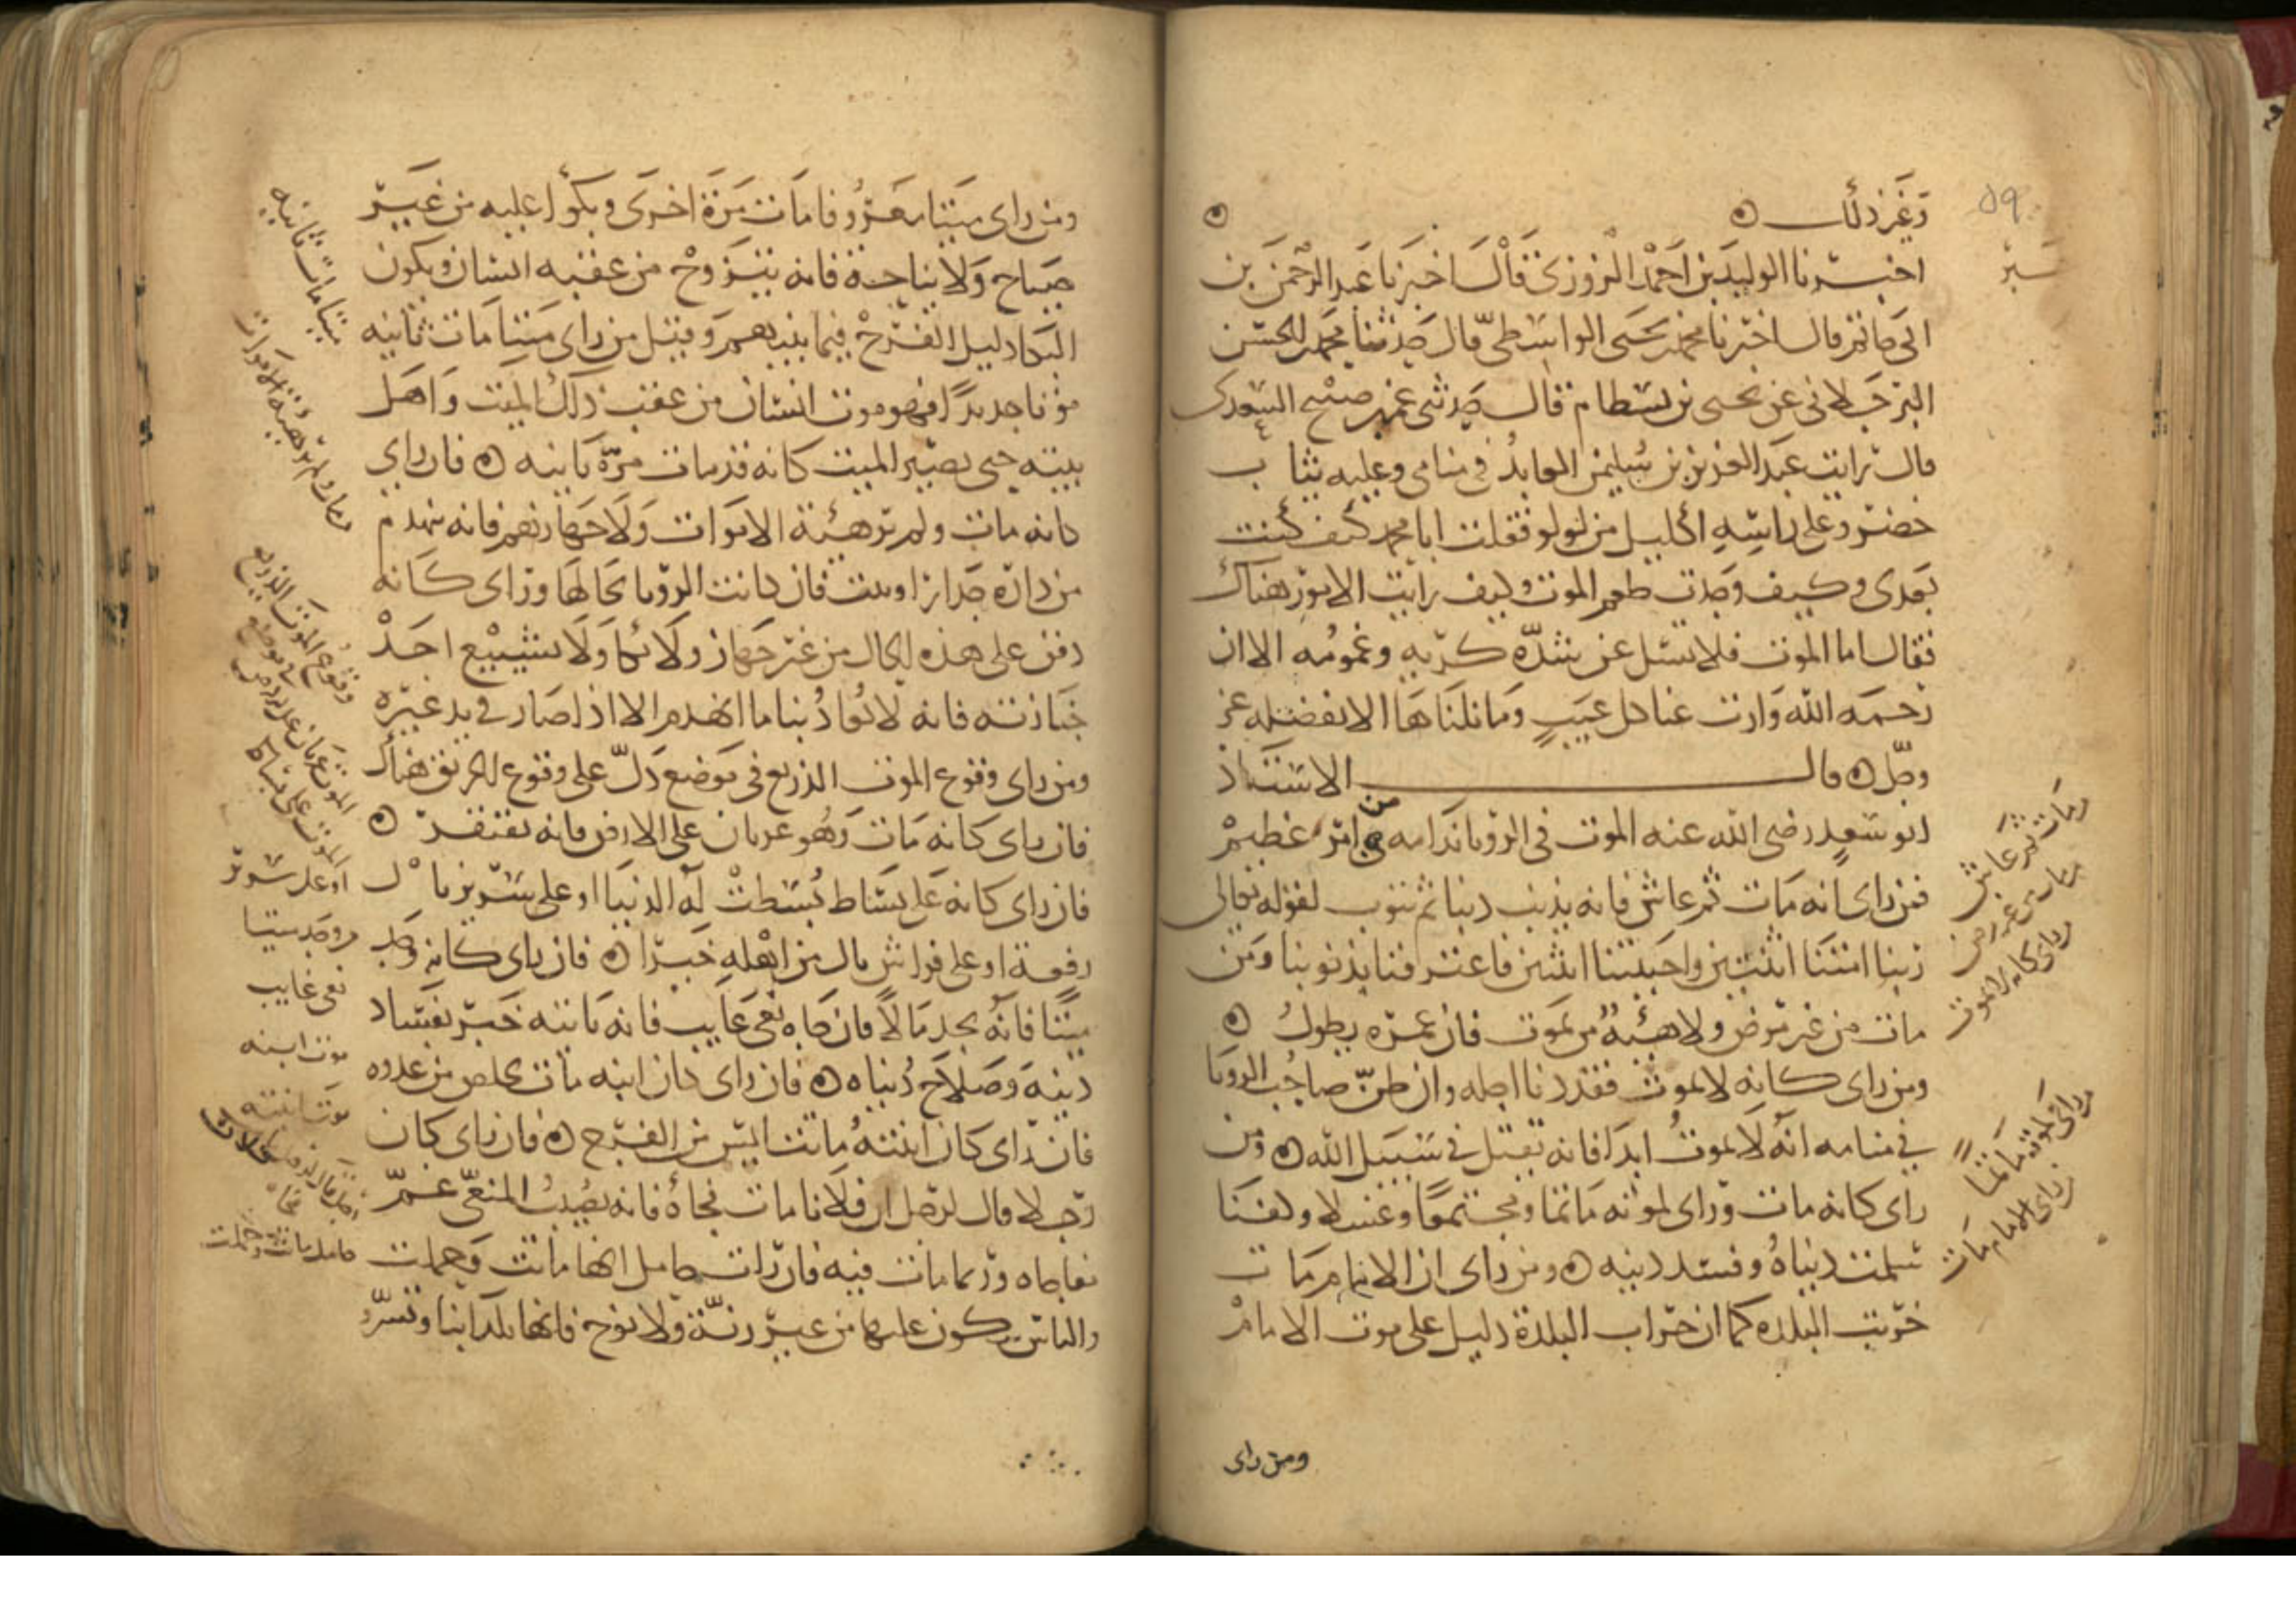 وغير ذلك ه ه
اخبرنا الوليد بن احمد الزوزني قال اخبرنا عبد الرحمن بن
ابي حاتم قال اخبرنا محمد بن يحيى الواسطي قال حدثنا محمد بن الحسن
البرجلاني عن يحيى بن بسطام قال حدثني عمر بن صبيح السعدي
قال رايت عبد العزيز بن سليمن العابد في منامي وعليه ثياب
خضر وعلى راسه اكليل من لولو فقلت ابا محمد كيف كنت
بعدي وكيف وجدت طعم الموت وكيف رايت الامور هناك
فقال اما الموت فلا تسئل عن شدة كربه وغمومه الا ان
رحمه الله وارت عنا كل عيب وما نلناها الا بفضله عز
وجل ه قال الاستاذ
ابو سعد رضي الله عنه الموت في الرويا ندامه من امر عظيم
فمن راى انه مات ثم عاش فانه يذنب ذنبا ثم يتوب لقوله تعالى
ربنا امتنا اثنتين واحييتنا اثنتين فاعترفنا بذنوبنا ومن
مات من غير مرض ولا هيئة من يموت فان عمره يطول ه
ومن راى كانه لا يموت فقد دنا اجله وان ظن صاحب الرويا
في منامه انه لا يموت ابدا فانه يقتل في سبيل الله ه ومن
راى كانه مات وراى لموته ماتما ومجتمعا وغسلا وكفنا
سلمت دنياه وفسد دينه ه ومن راى ان الامام مات
خربت البلدة كما ان خراب البلدة دليل على موت الامام
ومن راى
٥٩
مات ثم عاش
من غير مرض
وراى كانه لا يموت
وراى لموته ماتما
راى الامام مات
ومن راى ميتا معروفا مات مرة اخرى وبكوا عليه من غير
صياح ولا نياحة فانه يتزوج من عقبه انسان ويكون
البكا دليل الفرح فيما بينهم وقيل من راى ميتا مات ثانيه
موتا جديدا فهو موت انسان من عقب ذلك الميت واهل
بيته حتى يصير الميت كانه قد مات مرة ثانيه ه فان راى
كانه مات ولم ير هيئة الاموات ولا جهازهم فانه ينهدم
من داره جدار او بيت فان كانت الرويا بحالها وراى كانه
دفن على هذه الحال من غير جهاز ولا بكا ولا تشييع احد
جنازته فانه لا يعاد بنا ما انهدم الا اذا صار في يد غيره
ومن راى وقوع الموت الذريع في موضع دل على وقوع الحريق هناك
فان راى كانه مات وهو عريان على الارض فانه يفتقر ه
فان راى كانه على بساط بسطت له الدنيا او على سرير نال
رفعة او على فراش نال من اهله خيرا ه فان راى كانه وجد
ميتا فانه يجد مالا فان جاه نعي غايب فانه ياتيه خبر بفساد
دينه وصلاح دنياه ه فان راى كان ابنه مات تخلص من عدوه
فان راى كان ابنته ماتت ايس من الفرج ه فان راى كان
رجلا قال لرجل ان فلانا مات فجأة فانه يصيب المنعي غم
مفاجاه وربما مات فيه فان رات حامل انها ماتت وحملت
والناس يبكون عليها من غير رنة ولا نوح فانها تلد ابنا وتسر
ميتا مات ثانيه
وقوع الموت الذريع
في موضع
الموت عريان على الارض
الموت على بساط
او على سرير
وجد ميتا
نعي غايب
موت ابنه
موت ابنته
حامل ماتت وحملت